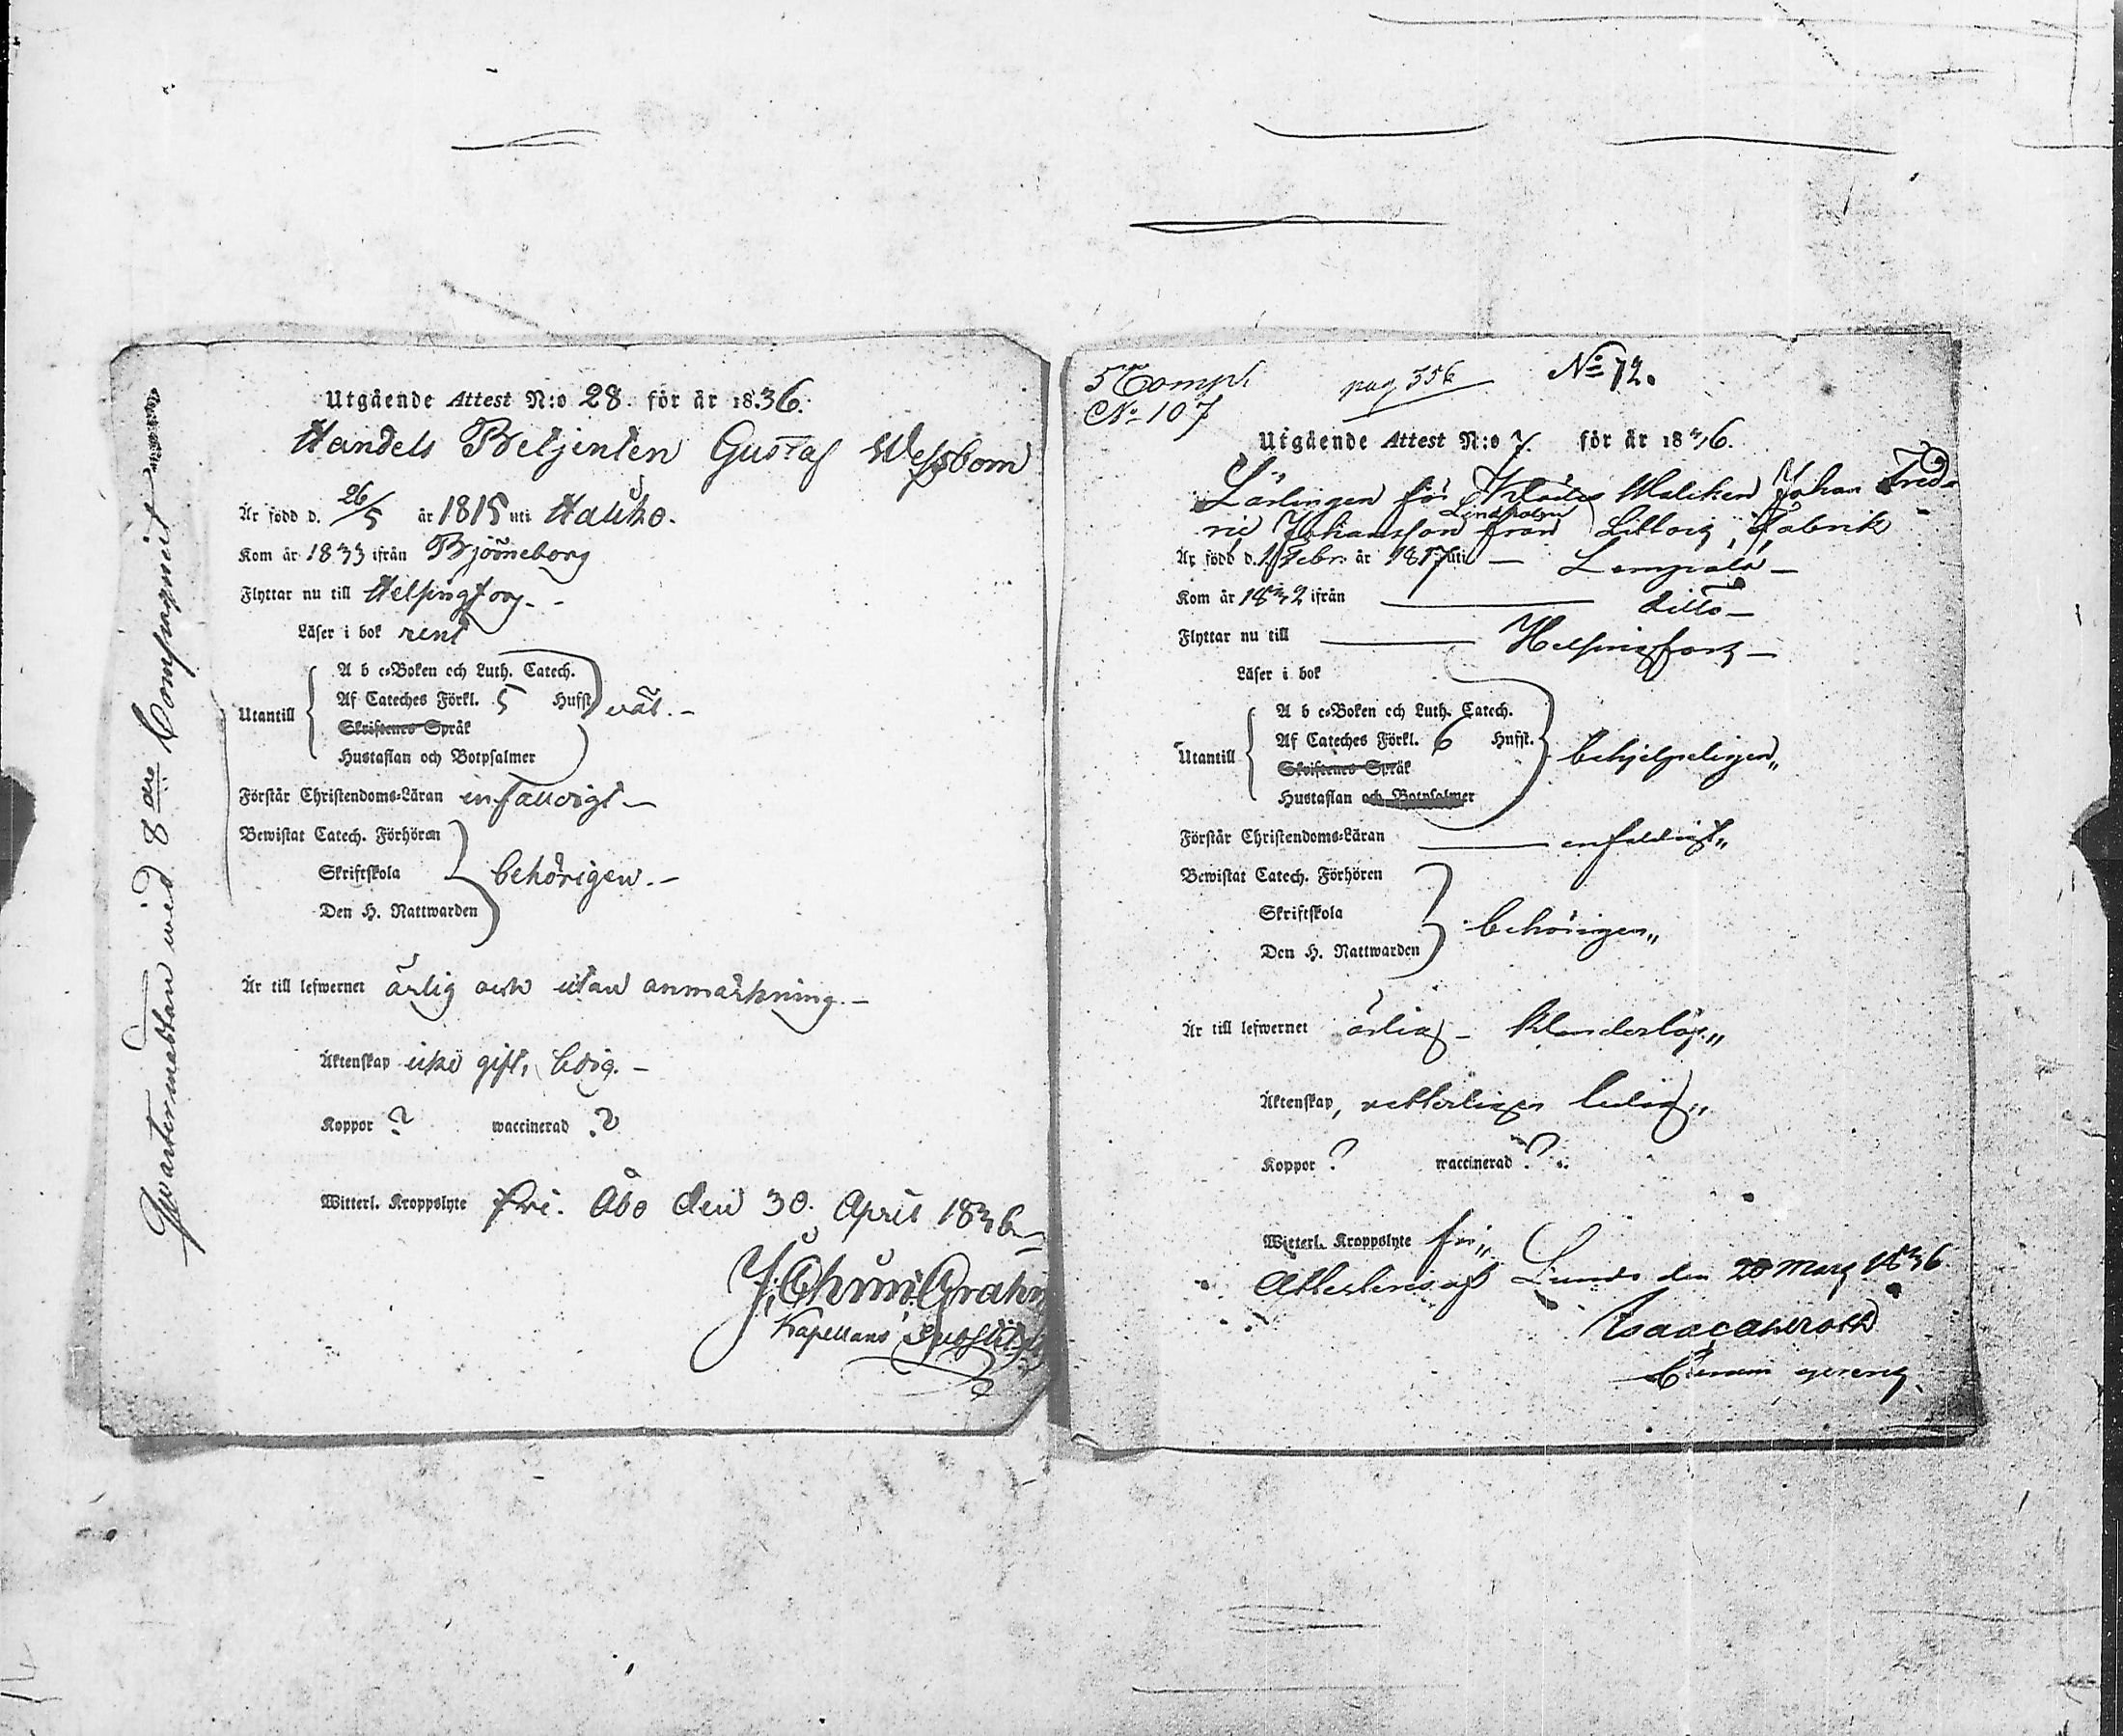 Utgående Attest N:o 28 för år 1836.
Handels Betjenten Gustaf Wessbom
Är född d. 26/5 år 1815 uti Hauho.
Kom år 1833 ifrån Björneborg
Flyttar nu till Helsingfors.
Läser i bok rent
A b c-Boken och Luth. Catech.
Utantill Af Cateches Förkl. 5 Hufst. väl.
Skriftenes Språk
Hustaflan och Botpsalmer
Förstår Christendoms-Läran enfaldigt
Bewistat Catech. Förhören
Skriftskola behörigen.
Den H. Nattwarden
Är till lefwernet ärlig och utan anmärkning.
Äktenskap icke gift, ledig.
Koppor ? waccinerad ?
Witterl. Kroppslyte fri. Åbo den 30. April 1836
Grahn
Kapellans
Qvartersmabtan wid 8de Compagniet
5 Comp.
pag 356
No 72.
No 107
Utgående Attest N:o 7. för år 1836.
Lärlingen för Klädes Walcken Johan Fred
ric Johansson Lindholm från Littois Fabrik
Är född d. 1 Febr. år 1817 uti — Lempälä —
Kom år 1832 ifrån — ditto —
Flyttar nu till — Helsingfors —
Läser i bok
A b c-Boken och Luth. Catech.
Utantill Af Cateches Förkl. 6 Hufst. behjelpeligen
Skriftenes Språk
Hustaflan och Botpsalmer
Förstår Christendoms-Läran — enfaldigt
Bewistat Catech. Förhören
Skriftskola behörigen
Den H. Nattwarden
Är till lefwernet ärlig — klanderlös
Äktenskap, ledig
Koppor ? waccinerad ?
Witterl. Kroppslyte fri
Attesteras af Lundo den 20 Mars 1836